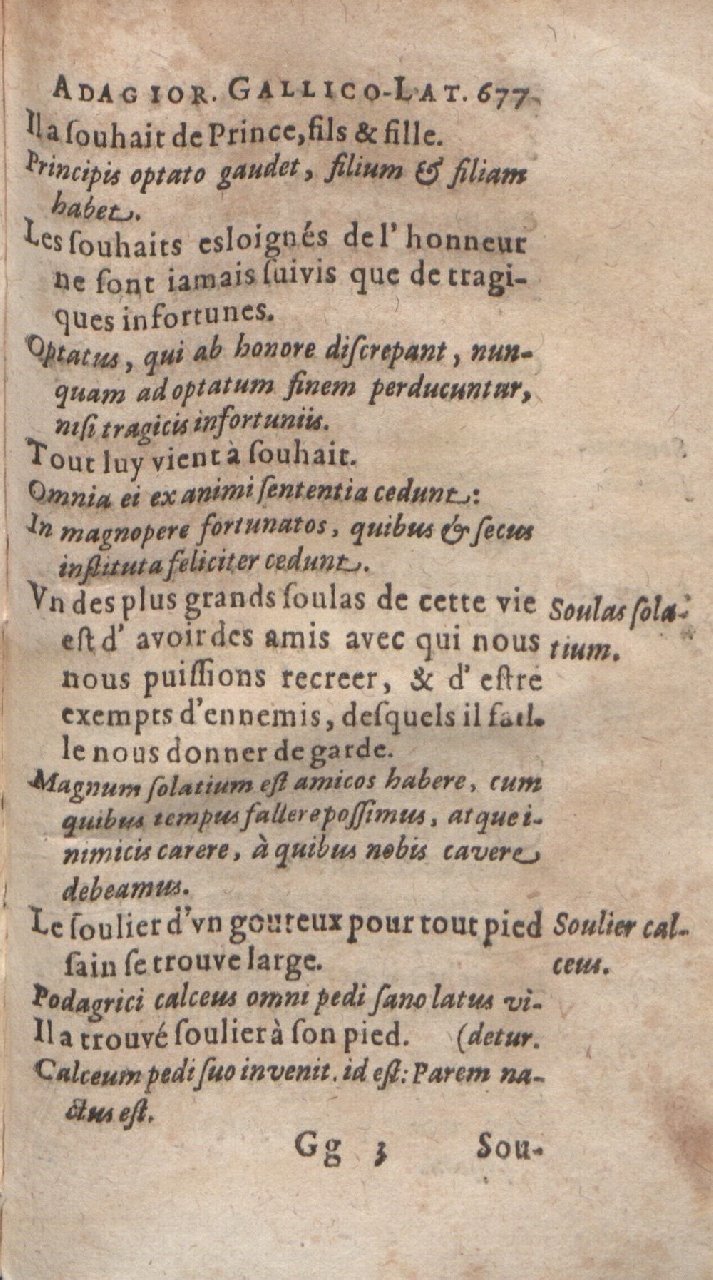 ADAGIOR. GALLICO-LAT. 677
Il a ſouhait de Prince, fils & fille.
Principis optato gaudet, filium & filiam
habet.
Les ſouhaits esloignés de l' honneur
ne ſont iamais ſuivis que de tragi-
ques infortunes.
Optatus, qui ab honore diſcrepant, nun-
quam ad optatum finem perducuntur,
niſi tragicis infortuniis.
Tout luy vient à ſouhait.
Omnia ei ex animi ſententia cedunt:
In magnopere fortunatos, quibus & ſecus
inſtituta feliciter cedunt.
Vn des plus grands ſoulas de cette vie
Soulas ſola-
eſt d' avoir des amis avec qui nous
tium.
nous puiſſions recreer, & d' eſtre
exempts d'ennemis, deſquels il fail-
le nous donner de garde.
Magnum ſolatium eſt amicos habere, cum
quibus tempus fallere poſſimus, atque i-
nimicis carere, à quibus nobis cavere
debeamus.
Le ſoulier d'vn gouteux pour tout pied
Soulier cal-
ſain ſe trouve large.
ceus.
Podagrici calceus omni pedi ſano latus vi-
Il a trouvé ſoulier à ſon pied. (detur.
Calceum pedi ſuo invenit. id eſt: Parem na-
ctus eſt.
Gg 3 Sou-